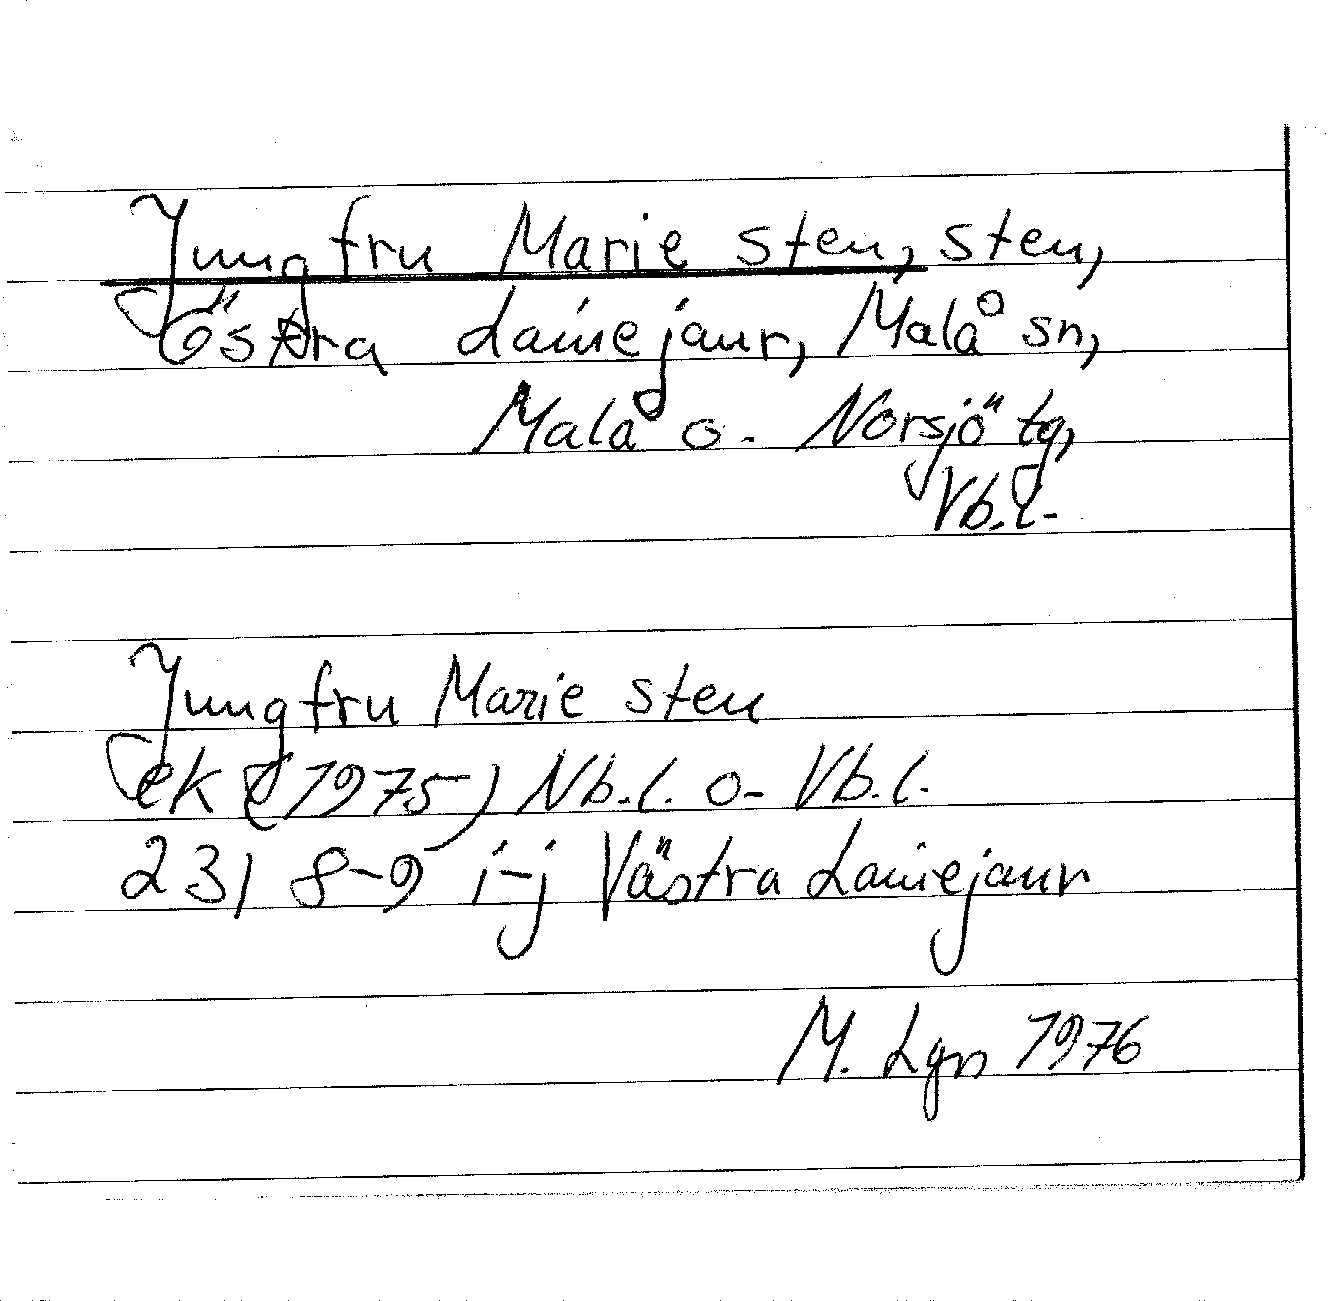 Jungfru Marie sten, sten,
Östra Lainejaur, Malå sn,
Malå o. Norsjö tg,
Vb.l.
Jungfru Marie sten
ek (1975) Nb.l. o- Vb.l.
23I 8-9 i-j Västra Lainejaur
M. Lgn 1976